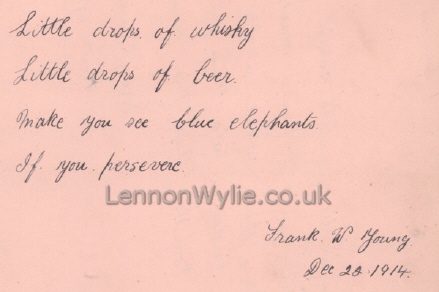 Little drops of whisky
Little drops of beer.
Make you see blue elephants.
If you persevere.
LennonWylie.co.uk
Frank. W. Young.
Dec 28. 1914.